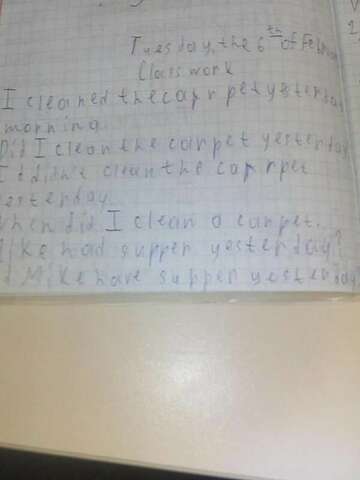 Tuesday, the 6th of Feb
Classwork
I cleaned the caprpet yesterday
morning.
Did I clean the carpet yesterday
I didn't clean the caprpet
yesterday.
When did I clean a carpet.
Mike had supper yesterday?
d Mike have supper yesterday